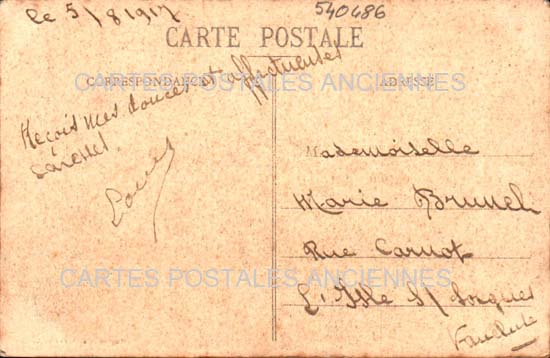 le 5/8 1917
540486
CARTE POSTALE
CORRESPONDANCE
ADRESSE
CARTES POSTALES ANCIENNES
Reçois mes douces et affectueuses
caresses.
Louis
Mademoiselle
Marie Brunel
Rue Carnot
CARTES POSTALES ANCIENNES
L'Isle S/ Sorgues
Vaucluse